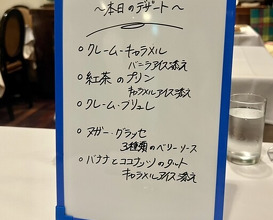 ～本日のデザート～
○クレーム・キャラメル
バニラアイス添え
○紅茶のプリン
キャラメルアイス添え
○クレーム・ブリュレ
○ヌガー・グラッセ
3種類のベリーソース
○バナナとココナッツのタルト
キャラメルアイス添え